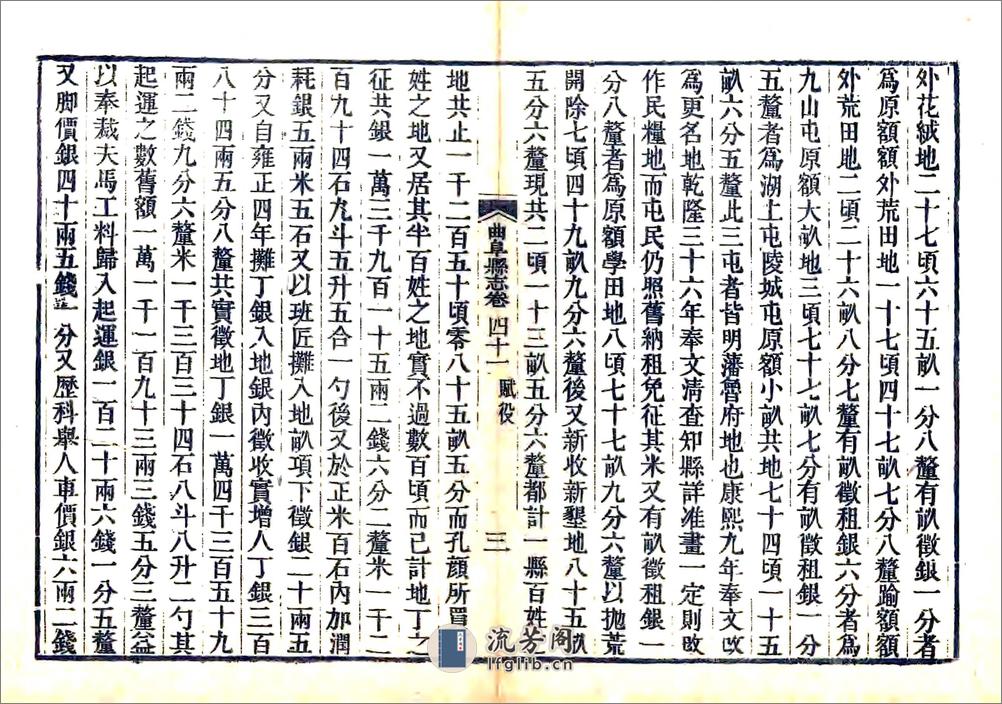 外花絨地二十七頃六十五畝一分八釐有畝徵銀一分者
為原額額外荒田地一十七頃四十七畝七分八釐踰額額
外荒田地二頃二十六畝八分七釐有畝徵租銀六分者為
九山屯原額大畝地三頃七十七畝七分有畝徵租銀一分
五釐者為湖上屯陵城屯原額小畝共地七十四頃一十五
畝六分五釐此三屯者皆明藩魯府地也康熙九年奉文改
為更名地乾隆三十六年奉文清查知縣詳准畫一定則改
作民糧地而屯民仍照舊納租免征其米又有畝徵租銀一
分八釐者為原額學田地八頃七十七畝九分六釐以拋荒
開除七頃四十九畝九分六釐後又新收新墾地八十五畝
五分六釐現共二頃一十三畝五分六釐都計一縣百姓
曲阜縣志卷四十一 賦役 三
地共止一千二百五十頃零八十五畝五分而孔顏所買
姓之地又居其半百姓之地實不過數百頃而已計地丁之
征共銀一萬三千九百一十五兩二錢六分二釐米一千二
百九十四石九斗五升五合一勺後又於正米百石內加潤
耗銀五兩米五石又以班匠攤入地畝項下徵銀二十兩五
分又自雍正四年攤丁銀入地銀內徵收實增人丁銀三百
八十四兩五分八釐共實徵地丁銀一萬四千三百五十九
兩二錢九分六釐米一千三百三十四石八斗八升二勺其
起運之數舊額一萬一千一百九十三兩三錢五分三釐益
以奉裁夫馬工料歸入起運銀一百二十兩六錢一分五釐
又脚價銀四十兩五錢一分又歷科舉人車價銀六兩二錢
流芳阁
lfglib.cn